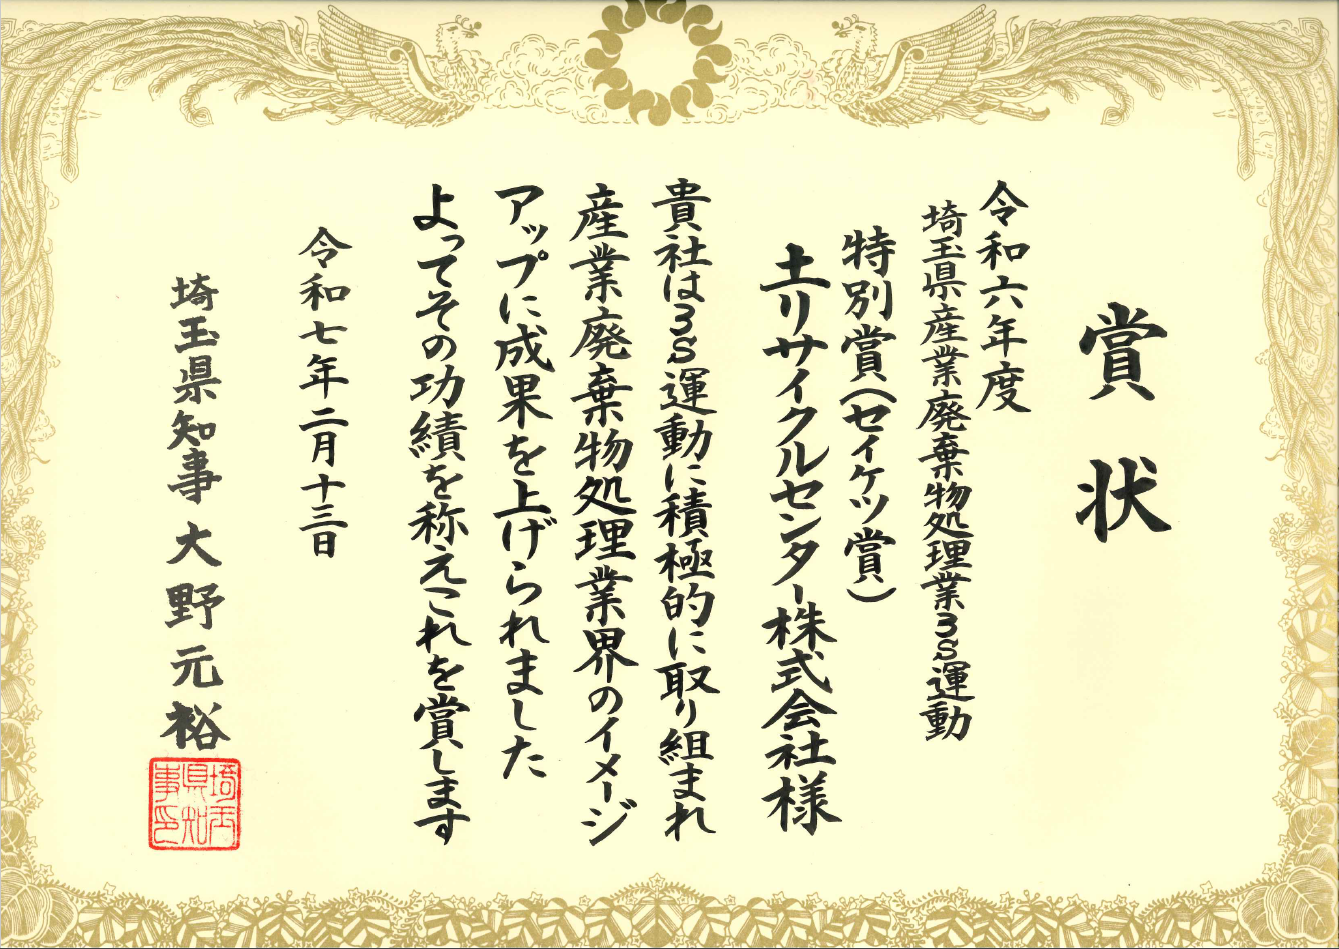 賞状
令和六年度
埼玉県産業廃棄物処理業3S運動
特別賞(セイケツ賞)
土リサイクルセンター株式会社様
貴社は3S運動に積極的に取り組まれ
産業廃棄物処理業界のイメージ
アップに成果を上げられました
よってその功績を称えこれを賞します
令和七年二月十三日
埼玉県知事 大野元裕
埼玉県知事印